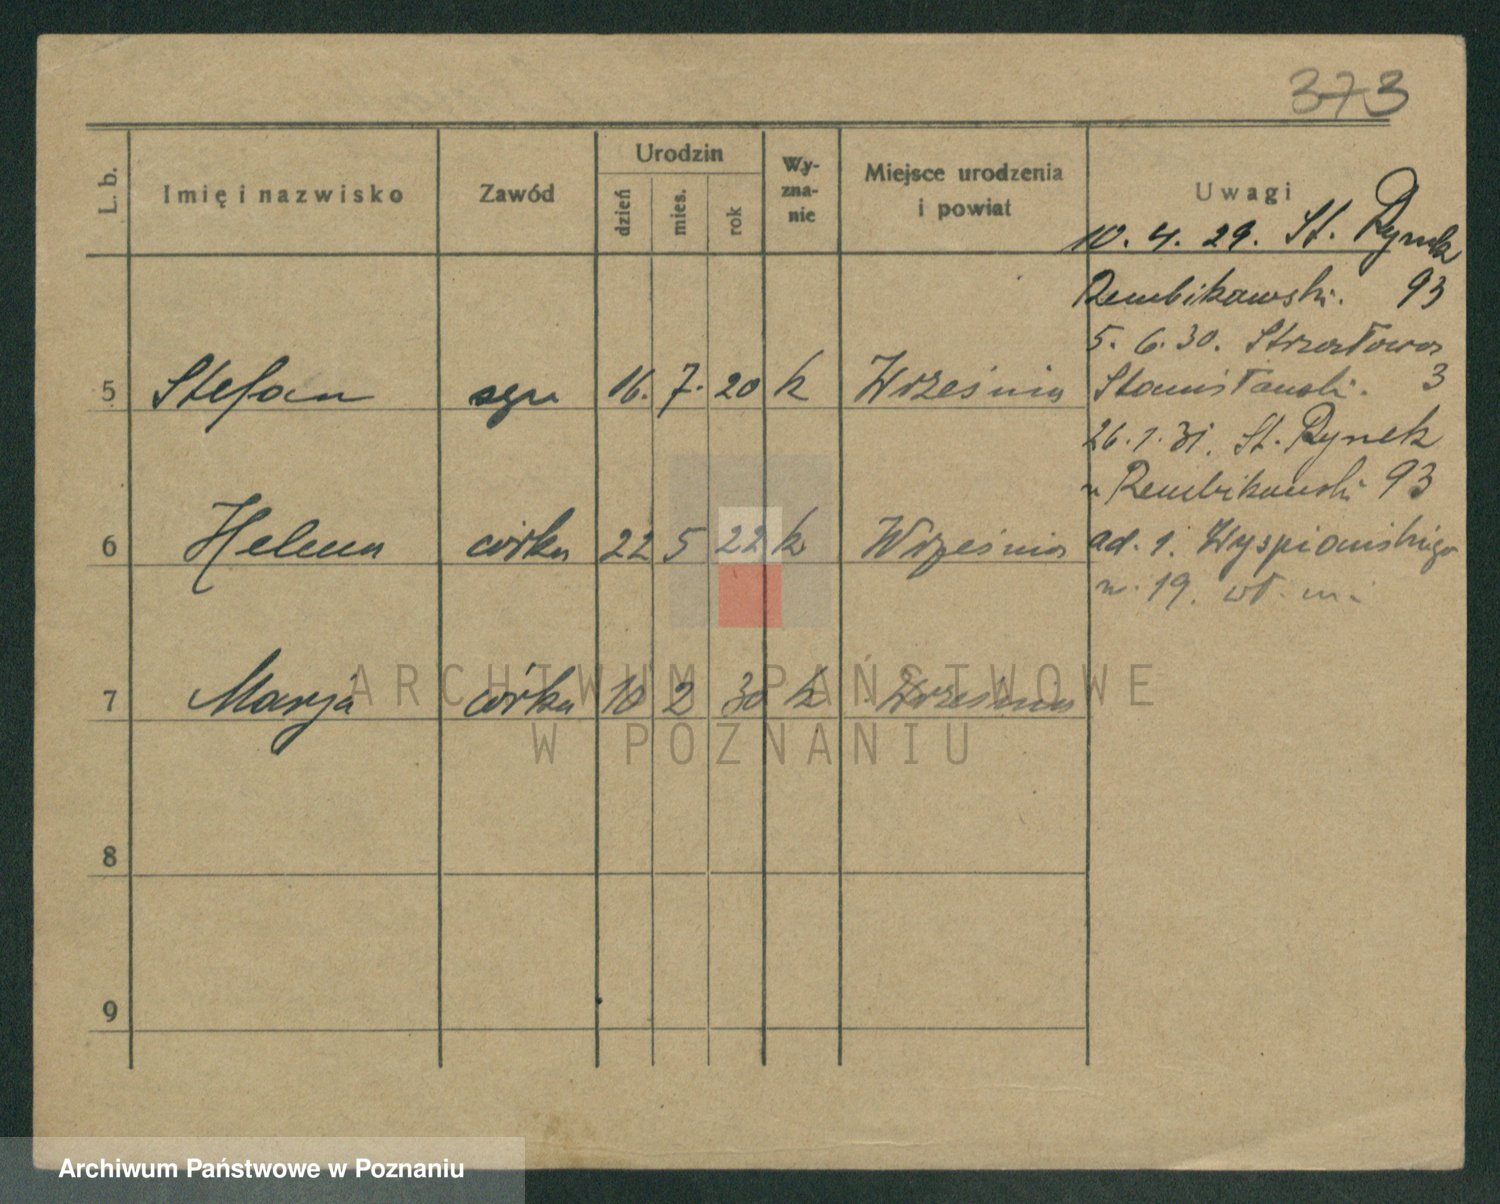 373
L. b. Imię i nazwisko Zawód Urodzin dzień mies. rok Wy-zna-nie Miejsce urodzenia i powiat Uwagi
10. 4. 29. St. Rynek
Rembikowski. 93
5. 6. 30. Strzałowa
5 Stefan syn 16. 7. 20 k Września
Stanisławski. 3
26. 1. 31. St. Rynek
u Rembikowski 93
6 Helena córka 22 5 22 k Września
ad. 1. Wyspiańskiego
n. 19. wł. m.
7 Marja córka 10 2 30 k Września
8
9
ARCHIWUM PAŃSTWOWE
W POZNANIU
Archiwum Państwowe w Poznaniu